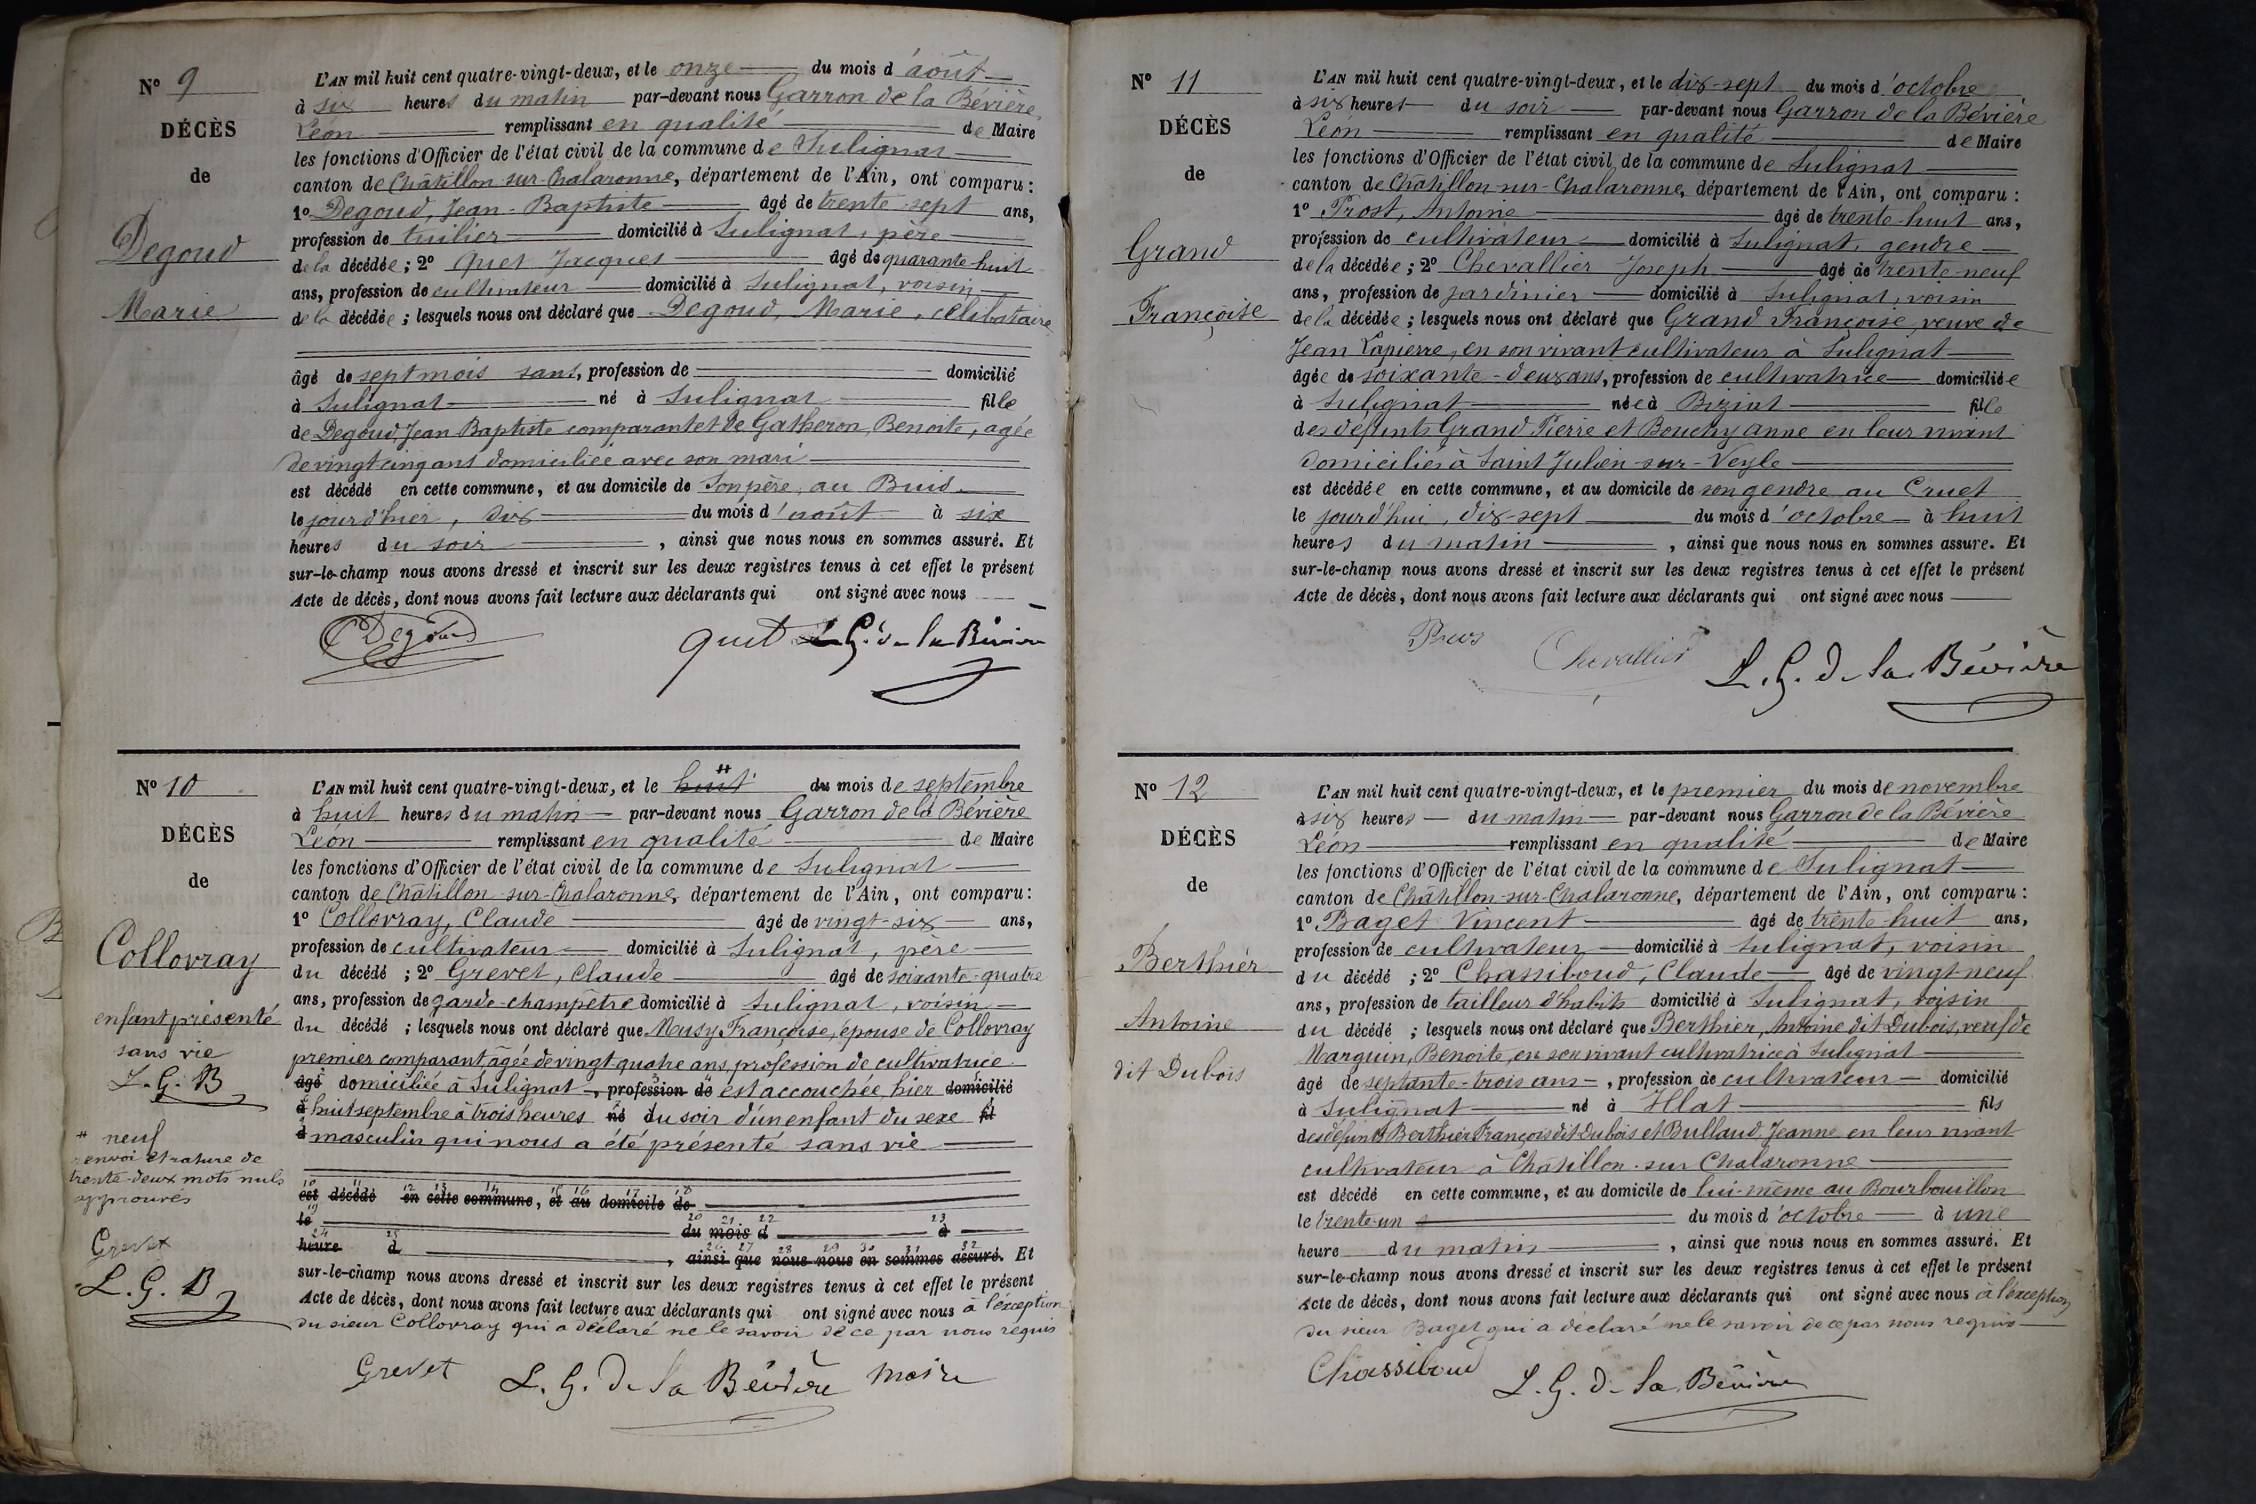 N° 9
DÉCÈS
de
Degoud
Marie
L'AN mil huit cent quatre-vingt-deux, et le onze du mois d'août
à six heures du matin par-devant nous Garron de la Bévière,
Léon remplissant en qualité de Maire
les fonctions d'Officier de l'état civil de la commune de Sulignat
canton de Châtillon-sur-Chalaronne, département de l'Ain, ont comparu :
1° Degoud, Jean-Baptiste âgé de trente-sept ans,
profession de tuilier domicilié à Sulignat, père
de la décédée ; 2° Quet Jacques âgé de quarante-huit
ans, profession de cultivateur domicilié à Sulignat, voisin
de la décédée ; lesquels nous ont déclaré que Degoud, Marie, célibataire
âgé de sept mois sans, profession de domicilié
à Sulignat né à Sulignat fille
de Degoud Jean Baptiste comparant et de Gatheron, Benoite, agée
de vingt cinq ans domiciliée avec son mari
est décédé en cette commune, et au domicile de son père, au Buis
le jour d'hier, dix du mois d'août à six
heures du soir, ainsi que nous nous en sommes assuré. Et
sur-le-champ nous avons dressé et inscrit sur les deux registres tenus à cet effet le présent
Acte de décès, dont nous avons fait lecture aux déclarants qui ont signé avec nous
Degoud quet L. G. de la Bévière
N° 10
DÉCÈS
de
Collovray
enfant présenté
sans vie
L. G. B
# neuf
renvoi et rature de
trente-deux mots nuls
approuvés
Grevet
L. G. B
L'AN mil huit cent quatre-vingt-deux, et le huit # du mois de septembre
à huit heures du matin par-devant nous Garron de la Bévière
Léon remplissant en qualité de Maire
les fonctions d'Officier de l'état civil de la commune de Sulignat
canton de Châtillon-sur-Chalaronne, département de l'Ain, ont comparu :
1° Collovray, Claude âgé de vingt-six ans,
profession de cultivateur domicilié à Sulignat, père
du décédé ; 2° Grevet, Claude âgé de soixante-quatre
ans, profession de garde-champêtre domicilié à Sulignat, voisin
du décédé ; lesquels nous ont déclaré que Françoise, épouse de Collovray
premier comparant âgée de vingt quatre ans, profession de cultivatrice
âgé domiciliée à Sulignat, profession de est accouchée hier domicilié
à huit septembre à trois heures né du soir d'un enfant du sexe fil
d masculin qui nous a été présenté sans vie
est décédé en cette commune, et au domicile de
le du mois d à
heure d, ainsi que nous nous en sommes assuré. Et
sur-le-champ nous avons dressé et inscrit sur les deux registres tenus à cet effet le présent
Acte de décès, dont nous avons fait lecture aux déclarants qui ont signé avec nous à l'exception
du sieur Collovray qui a déclaré ne le savoir de ce par nous requis
Grevet L. G. de la Bévière maire
N° 11
DÉCÈS
de
Grand
Françoise
L'AN mil huit cent quatre-vingt-deux, et le dix-sept du mois d'octobre
à six heures du soir par-devant nous Garron de la Bévière
Léon remplissant en qualité de Maire
les fonctions d'Officier de l'état civil de la commune de Sulignat
canton de Châtillon-sur-Chalaronne, département de l'Ain, ont comparu :
1° Prost, Antoine âgé de trente-huit ans,
profession de cultivateur domicilié à Sulignat, gendre
de la décédée ; 2° Chevallier Joseph âgé de trente-neuf
ans, profession de jardinier domicilié à Sulignat, voisin
de la décédée ; lesquels nous ont déclaré que Grand Françoise, veuve de
Jean Lapierre, en son vivant cultivateur à Sulignat
âgée de soixante-deux ans, profession de cultivatrice domiciliée
à Sulignat née à Biziat fille
des défunts Grand Pierre et Bouchy anne en leur vivant
domiciliés à Saint Julien-sur-Veyle
est décédée en cette commune, et au domicile de son gendre au Cruet
le jourd'hui, dix-sept du mois d'octobre à huit
heures du matin, ainsi que nous nous en sommes assuré. Et
sur-le-champ nous avons dressé et inscrit sur les deux registres tenus à cet effet le présent
Acte de décès, dont nous avons fait lecture aux déclarants qui ont signé avec nous
Chevallier L. G. de la Bévière
N° 12
DÉCÈS
de
Berthier
Antoine
dit Dubois
L'AN mil huit cent quatre-vingt-deux, et le premier du mois de novembre
à six heures du matin par-devant nous Garron de la Bévière
Léon remplissant en qualité de Maire
les fonctions d'Officier de l'état civil de la commune de Sulignat
canton de Châtillon-sur-Chalaronne, département de l'Ain, ont comparu :
1° Baget Vincent âgé de trente-huit ans,
profession de cultivateur domicilié à Sulignat, voisin
du décédé ; 2° Chassiboud, Claude âgé de vingt-neuf
ans, profession de tailleur d'habits domicilié à Sulignat, voisin
du décédé ; lesquels nous ont déclaré que Berthier, Antoine dit Dubois, veuf de
Marguin, Benoite, en son vivant cultivatrice à Sulignat
âgé de septante-trois ans, profession de cultivateur domicilié
à Sulignat né à Illat fils
des défunts Berthier François dit Dubois et Bulland Jeanne en leur vivant
cultivateur à Châtillon-sur-Chalaronne
est décédé en cette commune, et au domicile de lui-même au Bourbouillon
le trente-un du mois d'octobre à une
heure du matin, ainsi que nous nous en sommes assuré. Et
sur-le-champ nous avons dressé et inscrit sur les deux registres tenus à cet effet le présent
Acte de décès, dont nous avons fait lecture aux déclarants qui ont signé avec nous à l'exception
du sieur Baget qui a déclaré ne le savoir de ce par nous requis
Chassiboud L. G. de la Bévière